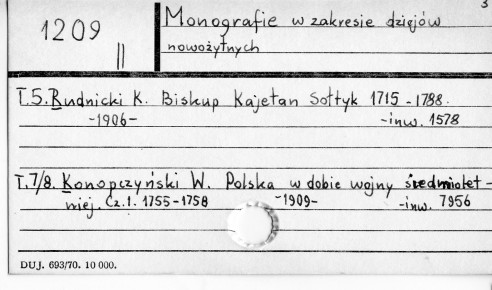 3
1209
II
Monografie w zakresie dziejów
nowożytnych
T.5. Rudnicki K. Biskup Kajetan Sołtyk 1715-1788.
-1906- -inw. 1578
T.7/8. Konopczyński W. Polska w dobie wojny siedmiolet-
niej. Cz.1. 1755-1758 -1909- -inw. 7956
DUJ. 693/70. 10 000.